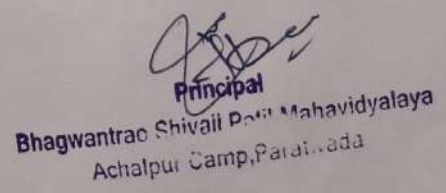 Principal
Bhagwantrao Shivaji Patil Mahavidyalaya
Achalpur Camp, Paratwada